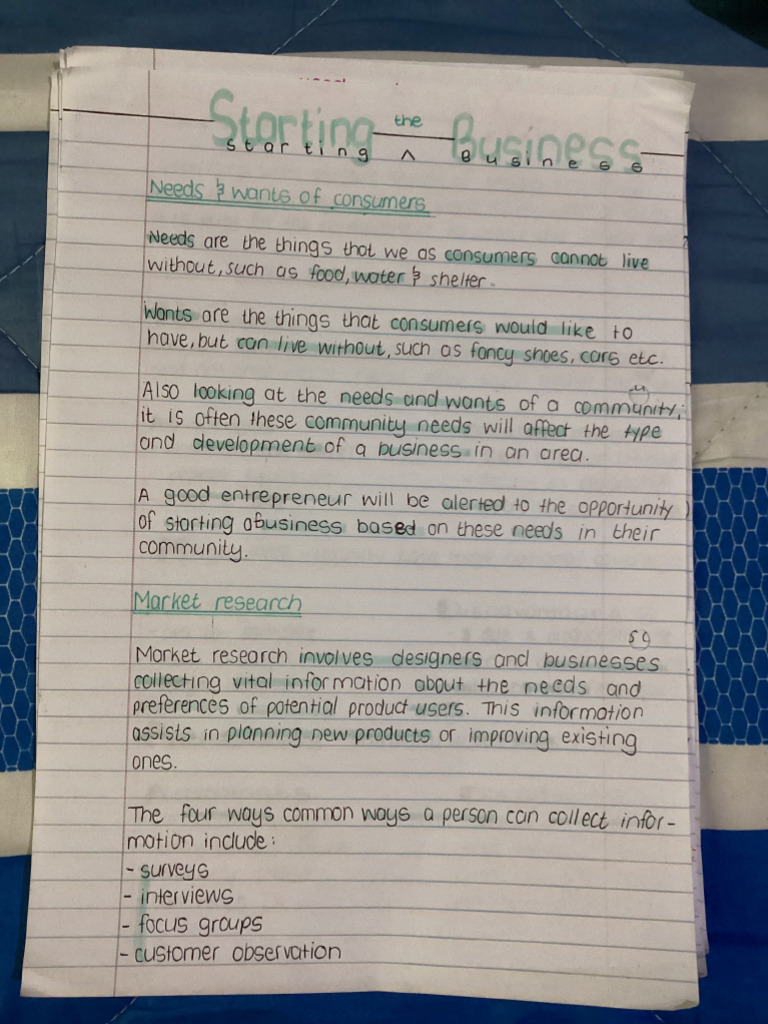 Starting the Business
starting ^ Business
Needs & wants of consumers
Needs are the things that we as consumers cannot live
without, such as food, water & shelter.
Wants are the things that consumers would like to
have, but can live without, such as fancy shoes, cars etc.
Also looking at the needs and wants of a community;
it is often these community needs will affect the type
and development of a business in an area.
A good entrepreneur will be alerted to the opportunity
of starting a business based on these needs in their
community.
Market research
Market research involves designers and businesses
collecting vital information about the needs and
preferences of potential product users. This information
assists in planning new products or improving existing
ones.
The four ways common ways a person can collect infor-
mation include:
- surveys
- interviews
- focus groups
- customer observation